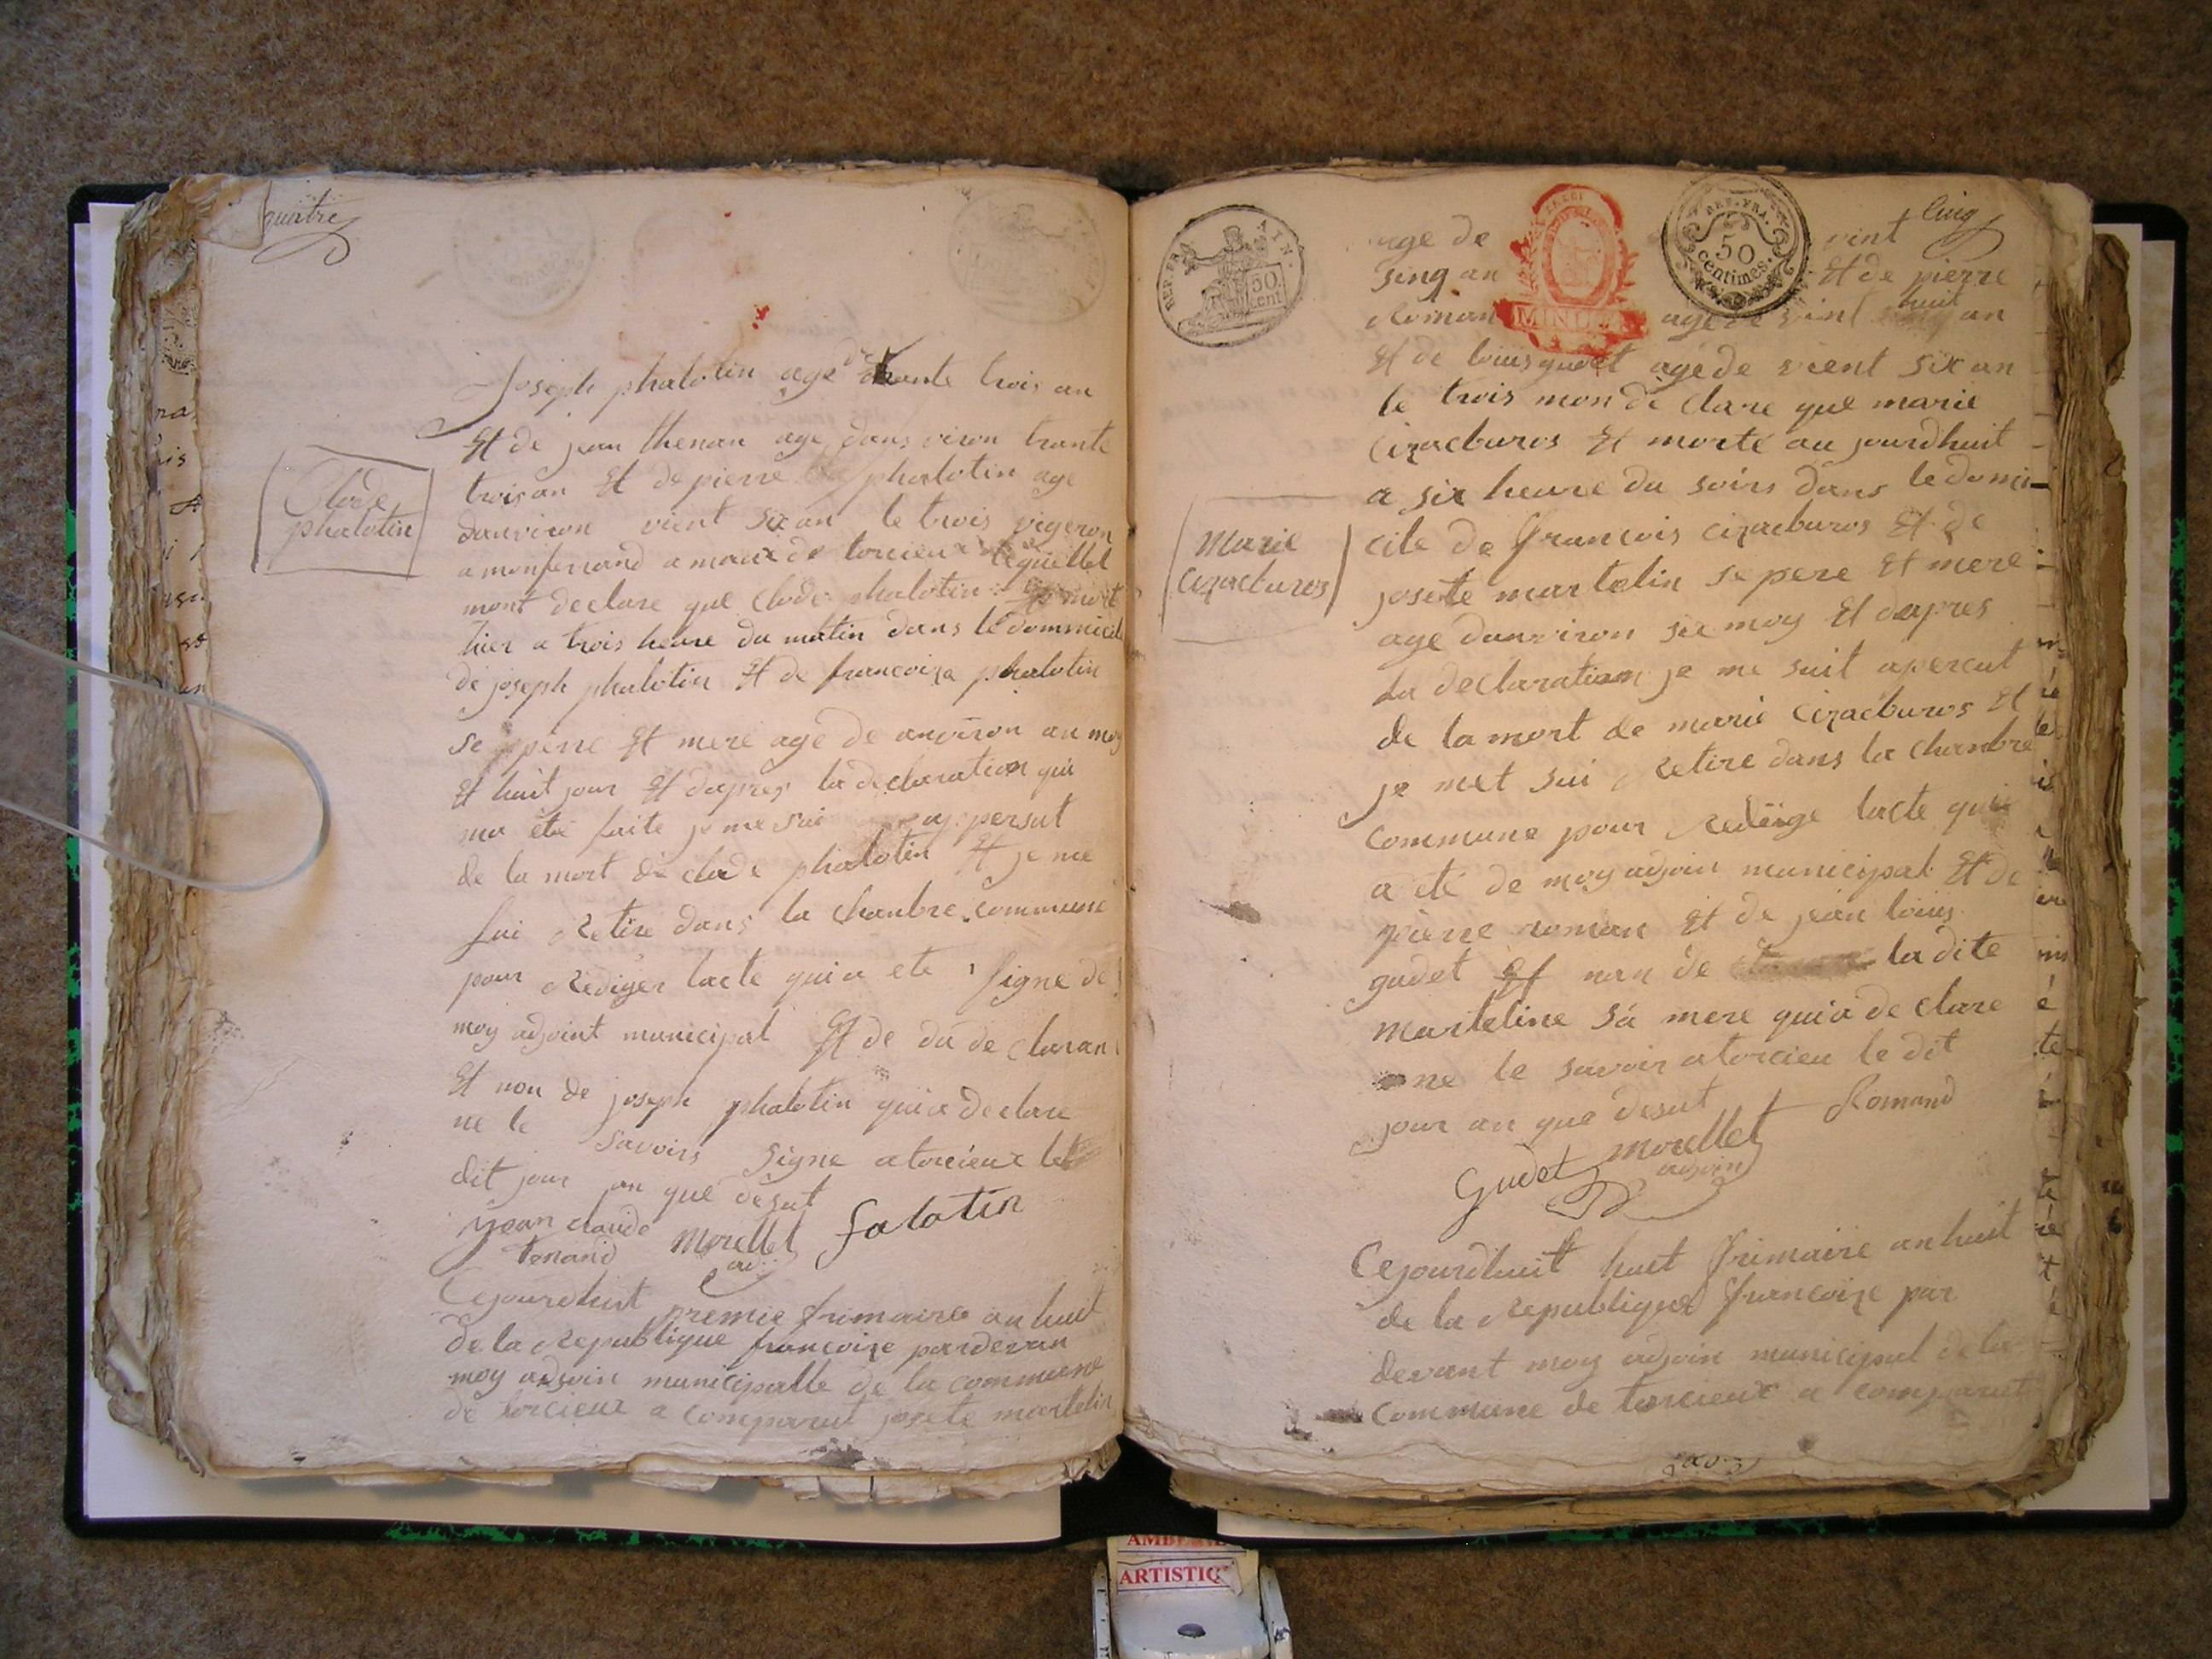 quatre
Joseph phalotin age de trante trois an
Et de jean thenan age danviron trante
trois an Et de pierre phalotin age
danviron vient six an le trois vigeron
a monferrand a maux de torcieux lequellet
mont declare que Clode phalotin mort
hier a trois heure du matin dans le dommicil
de joseph phalotin Et de francoize phalotin
se perre Et mere age de anviron un moy
Et huit jour Et dapres la declaration qui
ma été faite je me sui appersut
de la mort de clode phalotin Et je me
sui Retire dans la chanbre commune
pour Rediger lacte qui a ete signe de
moy adjoint municipal Et de du declaran
Et non de joseph phalotin qui a declare
ne le savoirs signe a torcieux let
dit jour an que desut
jean claude
tenand Morellet falotin
adj
Clode
phalotin
Cejourdhuit premie frimaire an huit
de la Republique francoize pardevan
moy adjoin municipalle de la commune
de torcieux a comparut josete martelin
REP. FRA
50
cent
REP. FRA.
50
centimes.
cinq
age de vint
sinq an Et de pierre
Roman age de vint huit an
Et de louis gudet age de vient six an
le trois mon declare que marie
Cizacburos Et morte au jourdhuit
a six heure du soirs dans le domi
cile de francois cizacburos Et de
josette martelin se pere Et mere
age danviron six moy Et dapres
La declaration je me suit apercut
de la mort de marie cizacburos Et
je met sui Retire dans la chanbre
commune pour Rediige lacte qui
a eté de moy adjoin municipal Et de
pierre roman Et de jean louis
gudet Et nan de la dite
marteline sa mere qui a declare
ne le savoir a torcieu le dit
jour an que desut Romand
Gudet Morellet
adjoin
Marie
Cizacburos
Cejourdhuit huet frimaire an huit
de la Republique francoize par
devant moy adjoin municipal de la
commune de torcieux a comparut
ARTISTIQ